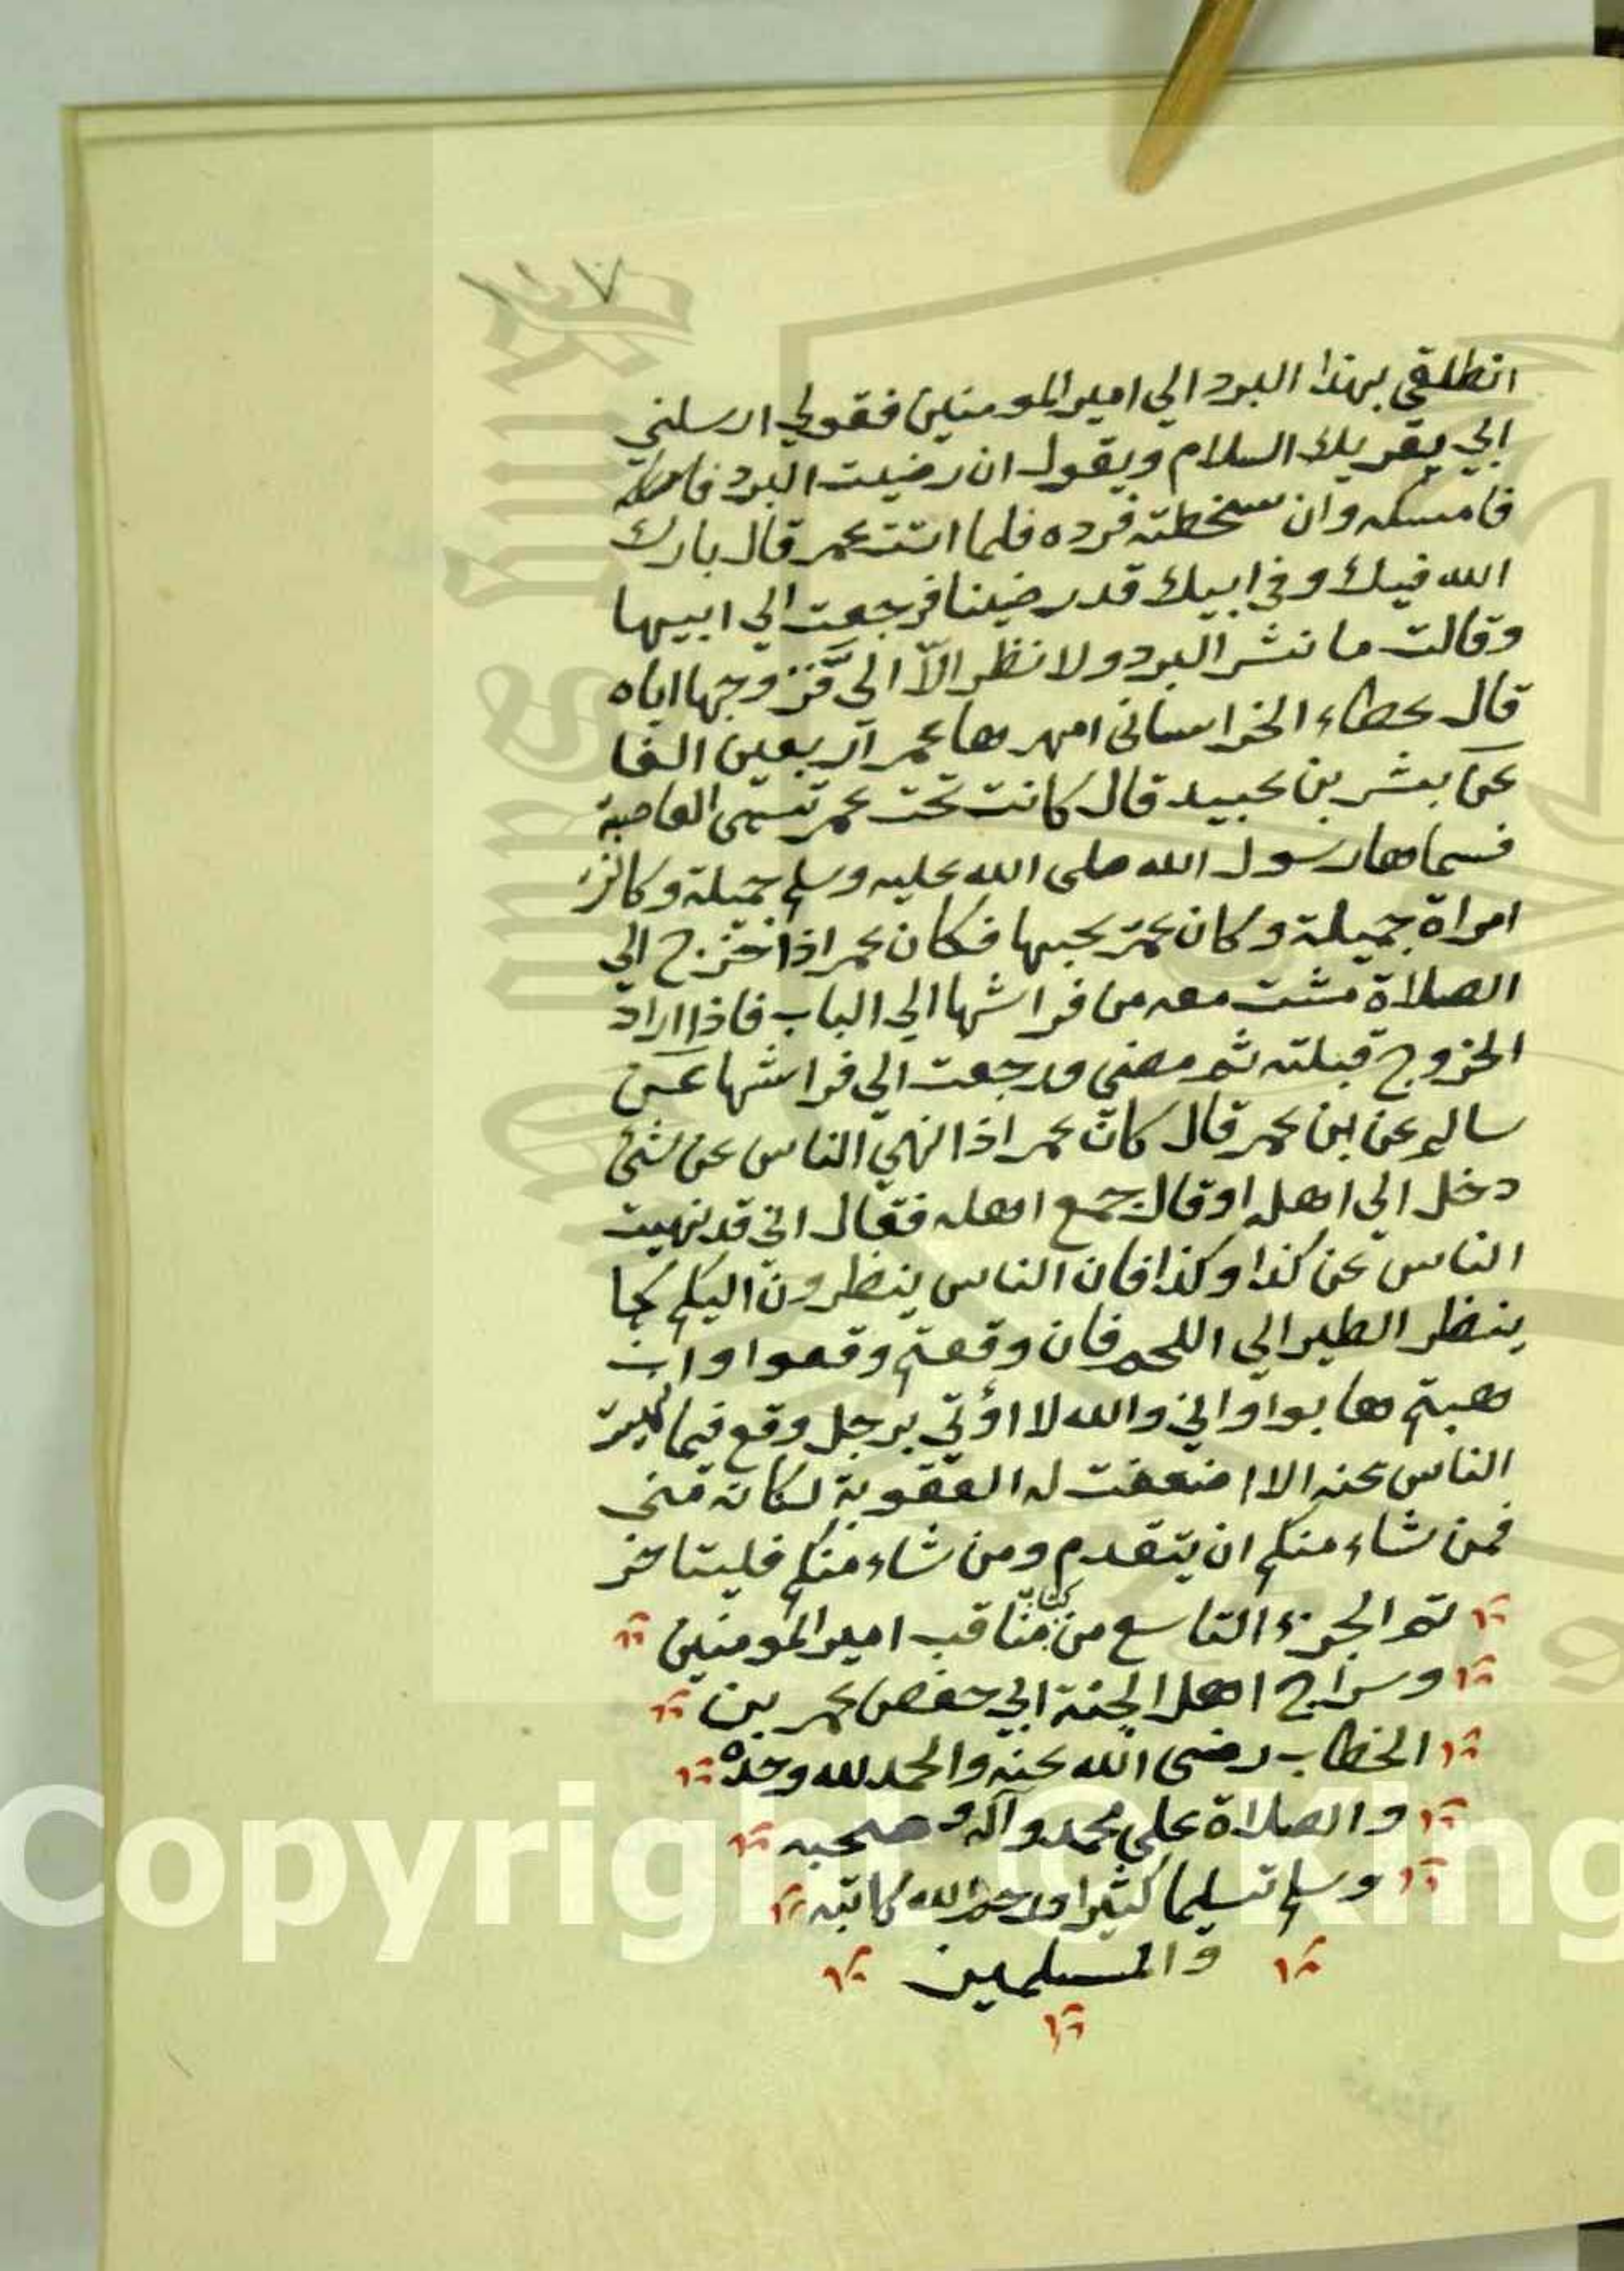 ٧
انطلقي بهذا البرد الي امير المومنين فقولي ارسلني
ابي يقريك السلام ويقول ان رضيت البرد
فامسكه وان سخطته فرده فلما اتت عمر قال بارك
الله فيك وفي ابيك قد رضينا فرجعت الي ابيها
وقالت ما نشر البرد ولا نظر الّا اليّ فزوجها اياه
قال عطاء الخراساني امهرها عمر اربعين الفا
عن بشر بن عبيد قال كانت تحت عمر تسمى العاصية
فسماها رسول الله صلى الله عليه وسلم جميلة وكانت
امراة جميلة وكان عمر يحبها فكان عمر اذا خرج الي
الصلاة مشت معه من فراشها الي الباب فاذا اراد
الخروج قبلته ثم مضي ورجعت الي فراشها عن
سالم عن بن عمر قال كان عمر اذا نهي الناس عن شئ
دخل الي اهله او قال جمع اهله فقال اني قد نهيت
الناس عن كذا وكذا فان الناس ينظرون اليكم كما
ينظر الطير الي اللحم فان وقعتم وقعوا وان
هبتم هابوا واني والله لا اؤتي برجل وقع فيما نهيت
الناس عنه الا اضعفت له العقوبة لمكانه مني
فمن شاء منكم ان يتقدم ومن شاء منكم فليتاخر
تم الجزء التاسع من كتاب مناقب امير المومنين
وسراج اهل الجنة ابي حفص عمر بن
الخطاب رضى الله عنه والحمد لله وحده
والصلاة علي محمد وآله وصحبه
وسلم تسليما كثيرا ورحم الله كاتبه
والمسلمين
Copyright © King